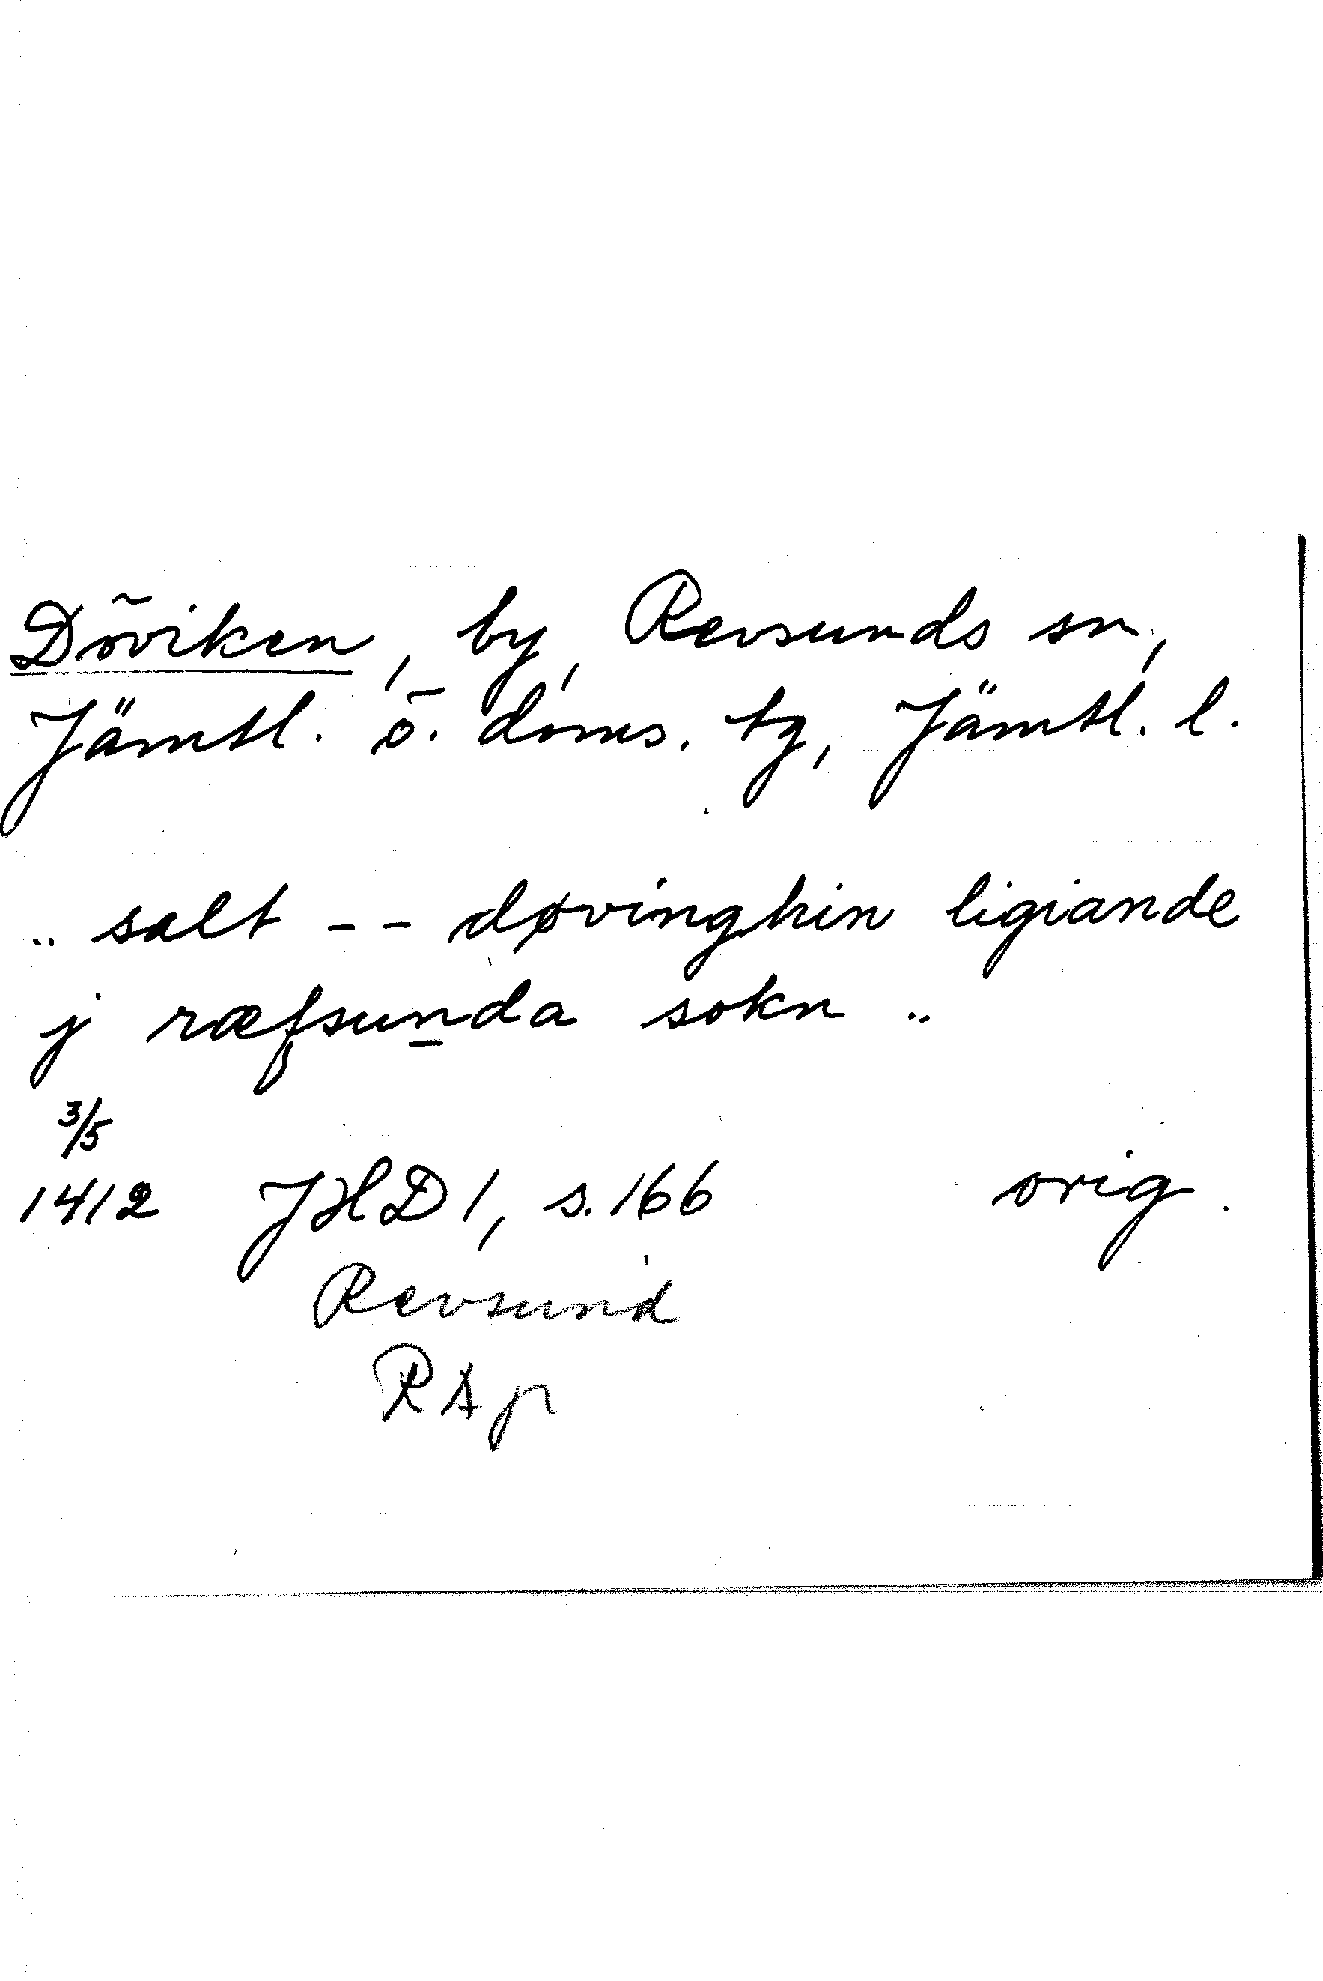 Döviken, by, Revsunds sn,
Jämtl. ö. doms. tg, Jämtl. l.
.. salt -- døvinghin ligiande
j ræfsunda sokn ..
3/5
1412 JHD 1, s. 166 orig.
Revsund
RAp